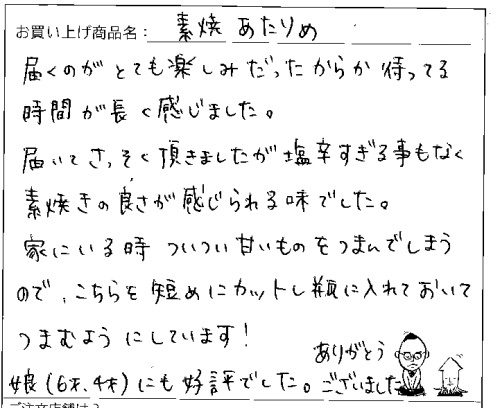 お買い上げ商品名： 素焼 あたりめ
届くのが とても楽しみだったからか 待ってる
時間が長く感じました。
届いてさっそく頂きましたが塩辛すぎる事もなく
素焼きの良さが感じられる味でした。
家にいる時 ついつい甘いものをつまんでしまう
ので、こちらを短めにカットし瓶に入れておいて
つまむようにしています！
ありがとう
娘(6才、4才)にも好評でした。ございました